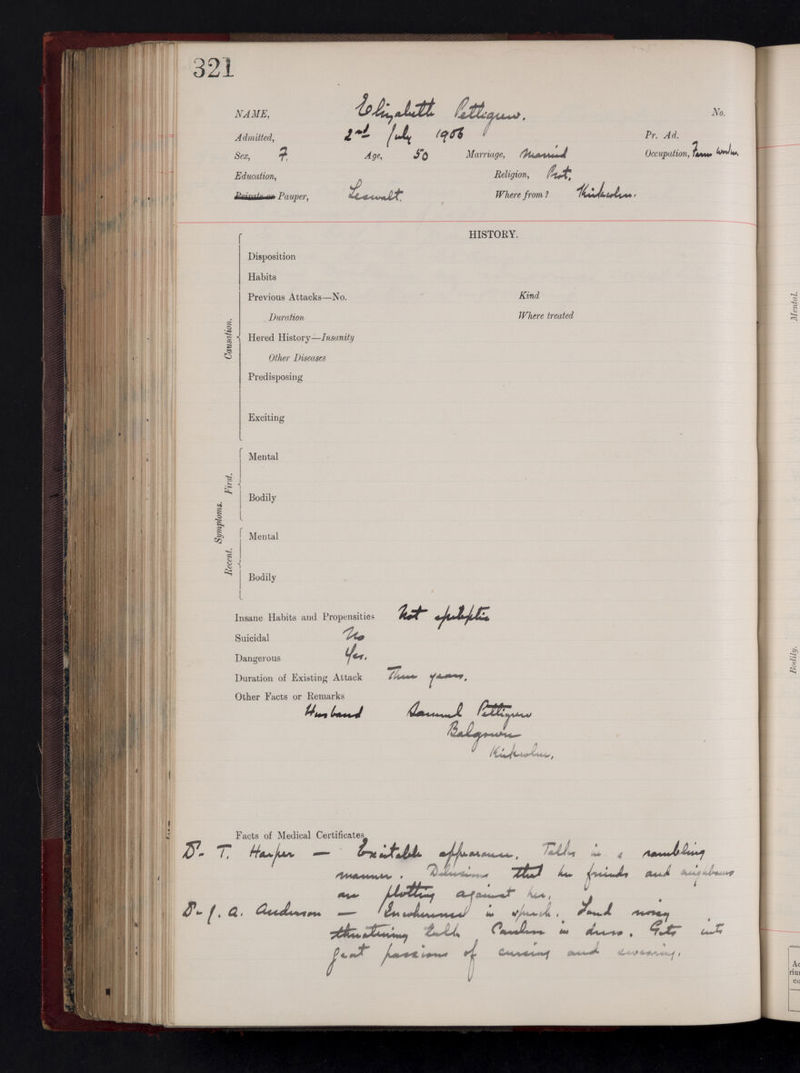 321
NAME, Elizabeth Pettigrew. No.
Admitted, 2nd July 1906 Pr. Ad.
Sex, F. Age, 50 Marriage, Married Occupation, Farm Worker.
Education, Religion, Prot.
Private or Pauper, Leswalt. Where from? Kirkcolm.
HISTORY.
Disposition
Habits
Previous Attacks—No. Kind
Duration Where treated
Causation.
Hered History—Insanity
Other Diseases
Predisposing
Exciting
Symptoms.
First.
Mental
Bodily
Recent.
Mental
Bodily
Insane Habits and Propensities Not epileptic
Suicidal No
Dangerous Yes.
Duration of Existing Attack Three years.
Other Facts or Remarks
Husband Samuel Pettigrew
Balgown
Kirkcolm.
Facts of Medical Certificates,
Dr. T. Harper — Excitable appearance. Talks in a rambling
manner. Delusions that her friends and neighbours
are plotting against her.
Dr J. A. Anderson — Incoherence in speech. Loud noisy
threatening talk Careless in dress. Gets into
great passions of cursing and swearing.
Mental.
Bodily.